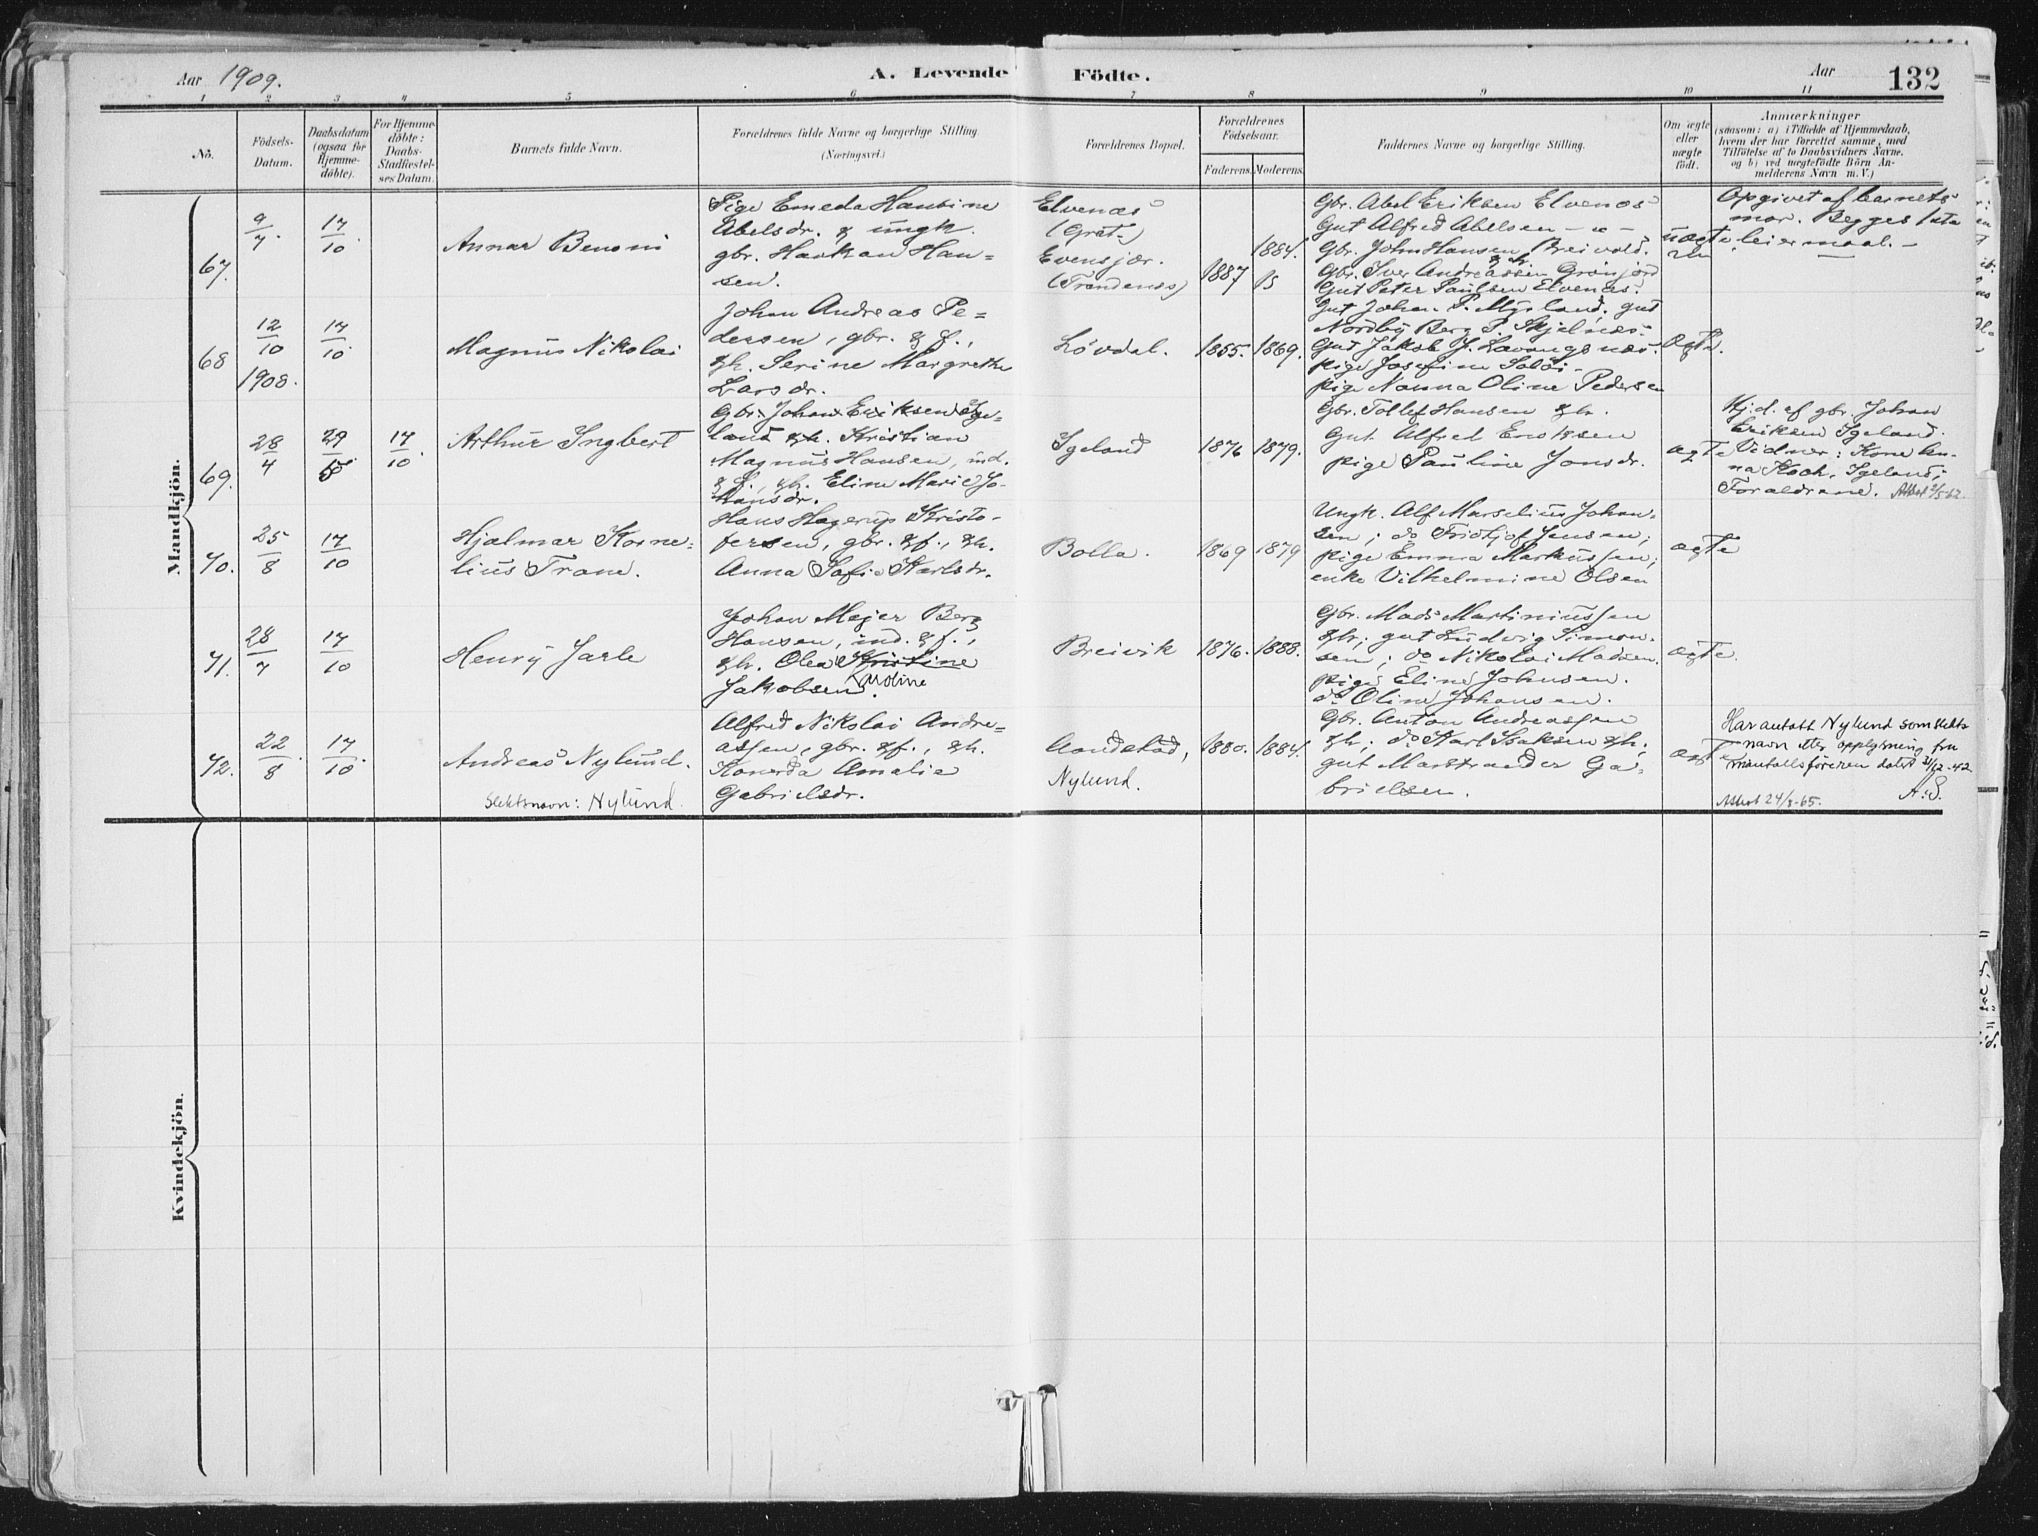 Aar 1909.
A. Levende Födte.
Aar
132
1 2 3 4 5 6 7 8 9 10 11
No.
Födsels-Datum.
Daabsdatum (ogsaa for Hjemme-döbte).
For Hjemme-döbte: Daabs-Stadfæstel-ses Datum.
Barnets fulde Navn.
Forældrenes fulde Navne og borgerlige Stilling.
(Næringsvei.)
Forældrenes Bopæl.
Forældrenes Födselsaar.
Faderens. Moderens.
Faddernes Navne og borgerlige Stilling.
Om ægte eller uægte födt.
Anmærkninger
(saasom: a) i Tilfælde af Hjemmedaab,
hvem der har forrettet samme, med
Tilföielse af to Daabsvidners Navne.
og b) ved uægtefödte Börn An-
melderens Navn m. V.)
Mandkjön.
67.
9/7.
17/10.
Annar Benoni
Pige Emeda Hansine
Abelsdr. & ungk.
gbr. Haakon Han=
sen.
Elvenæs
(Grat.)
Evensjær.
(Trondenæs)
1887
1884.
B
Gbr. Abel Eriksen Elvenæs
Gut Alfred Abelsen — " —
Gbr. John Hansen, Breivold.
Gbr. Iver Andreassen & h. Grönjord
Gut Peter Paulsen Elvenæs.
uægte
Opgivet af barnets
mor. Begges 1ste
leiermaal. —
68
12/10
1908.
17/10.
Magnus Nikolai
Johan Andreas Pe=
dersen, gbr. & f.,
& h. Serine Margrethe
Larsdr.
Lövdal.
1855.
1869.
Gut Johan P. Mysland. gut
Nordby Berg P. Skjelnæs.
Gut Jakob J. Lavangsnæs.
pige Josefine
pige Nanna Oline Pedersen
ægte.
69.
28/4
29/5
17/10.
Arthur Ingbert
Gbr. Johan Eriksen Ige-
land & h. Kristian
Magnus Hansen, ind.
& f., & h. Eline Marie Jo-
hansdr.
Igeland
1876
1879.
Gbr. Tollef Hansen & h.
Gut Alfred Eriksen
pige Pauline Jonsdr.
ægte
Hj.d. af gbr. Johan
Eriksen Igeland.
Vidner: Kone An-
na Koch, Igeland;
Forældrene. Attest 2/5 62.
70.
25/8
17/10
Hjalmar Korne=
lius Trane.
Hans Hagerup Kristo-
fersen, gbr. & f., & h.
Anna Sofie Karlsdr.
Bolla.
1869
1879
Ungk. Alf Marselius Johan=
sen; do Fridtjof Jensen;
pige Emma Markussen;
enke Vilhelmine Olsen
ægte
71.
28/7
17/10
Henry Jarle
Johan Mejer Berg
Hansen, ind. & f.,
& h. Olea Kristine
Jakobsen. Karoline
Breivik
1876.
1888.
Gbr. Mads Martinussen
& h; gut Ludvig Simon-
sen; do Nikolai Madsen.
pige Eline Johnsen.
do Oline Johansen.
ægte.
72.
22/8
17/10.
Andreas Nylund.
Slektsnavn: Nylund.
Alfred Nikolai Andre=
assen, gbr. & f., & h.
Konerda Amalie
Gabrielsdr.
Aandstad,
Nylund.
1880.
1884.
Gbr. Anton Andreassen
& h; do Karl Isaksen & h.
gut Marstrander Ga-
brielsen.
ægte
Har antatt Nylund som slekts-
navn etter opplysning fra
mantallsföreren datert 21/12-42
A.S.
Attest 24/3-65.
Kvindekjön.